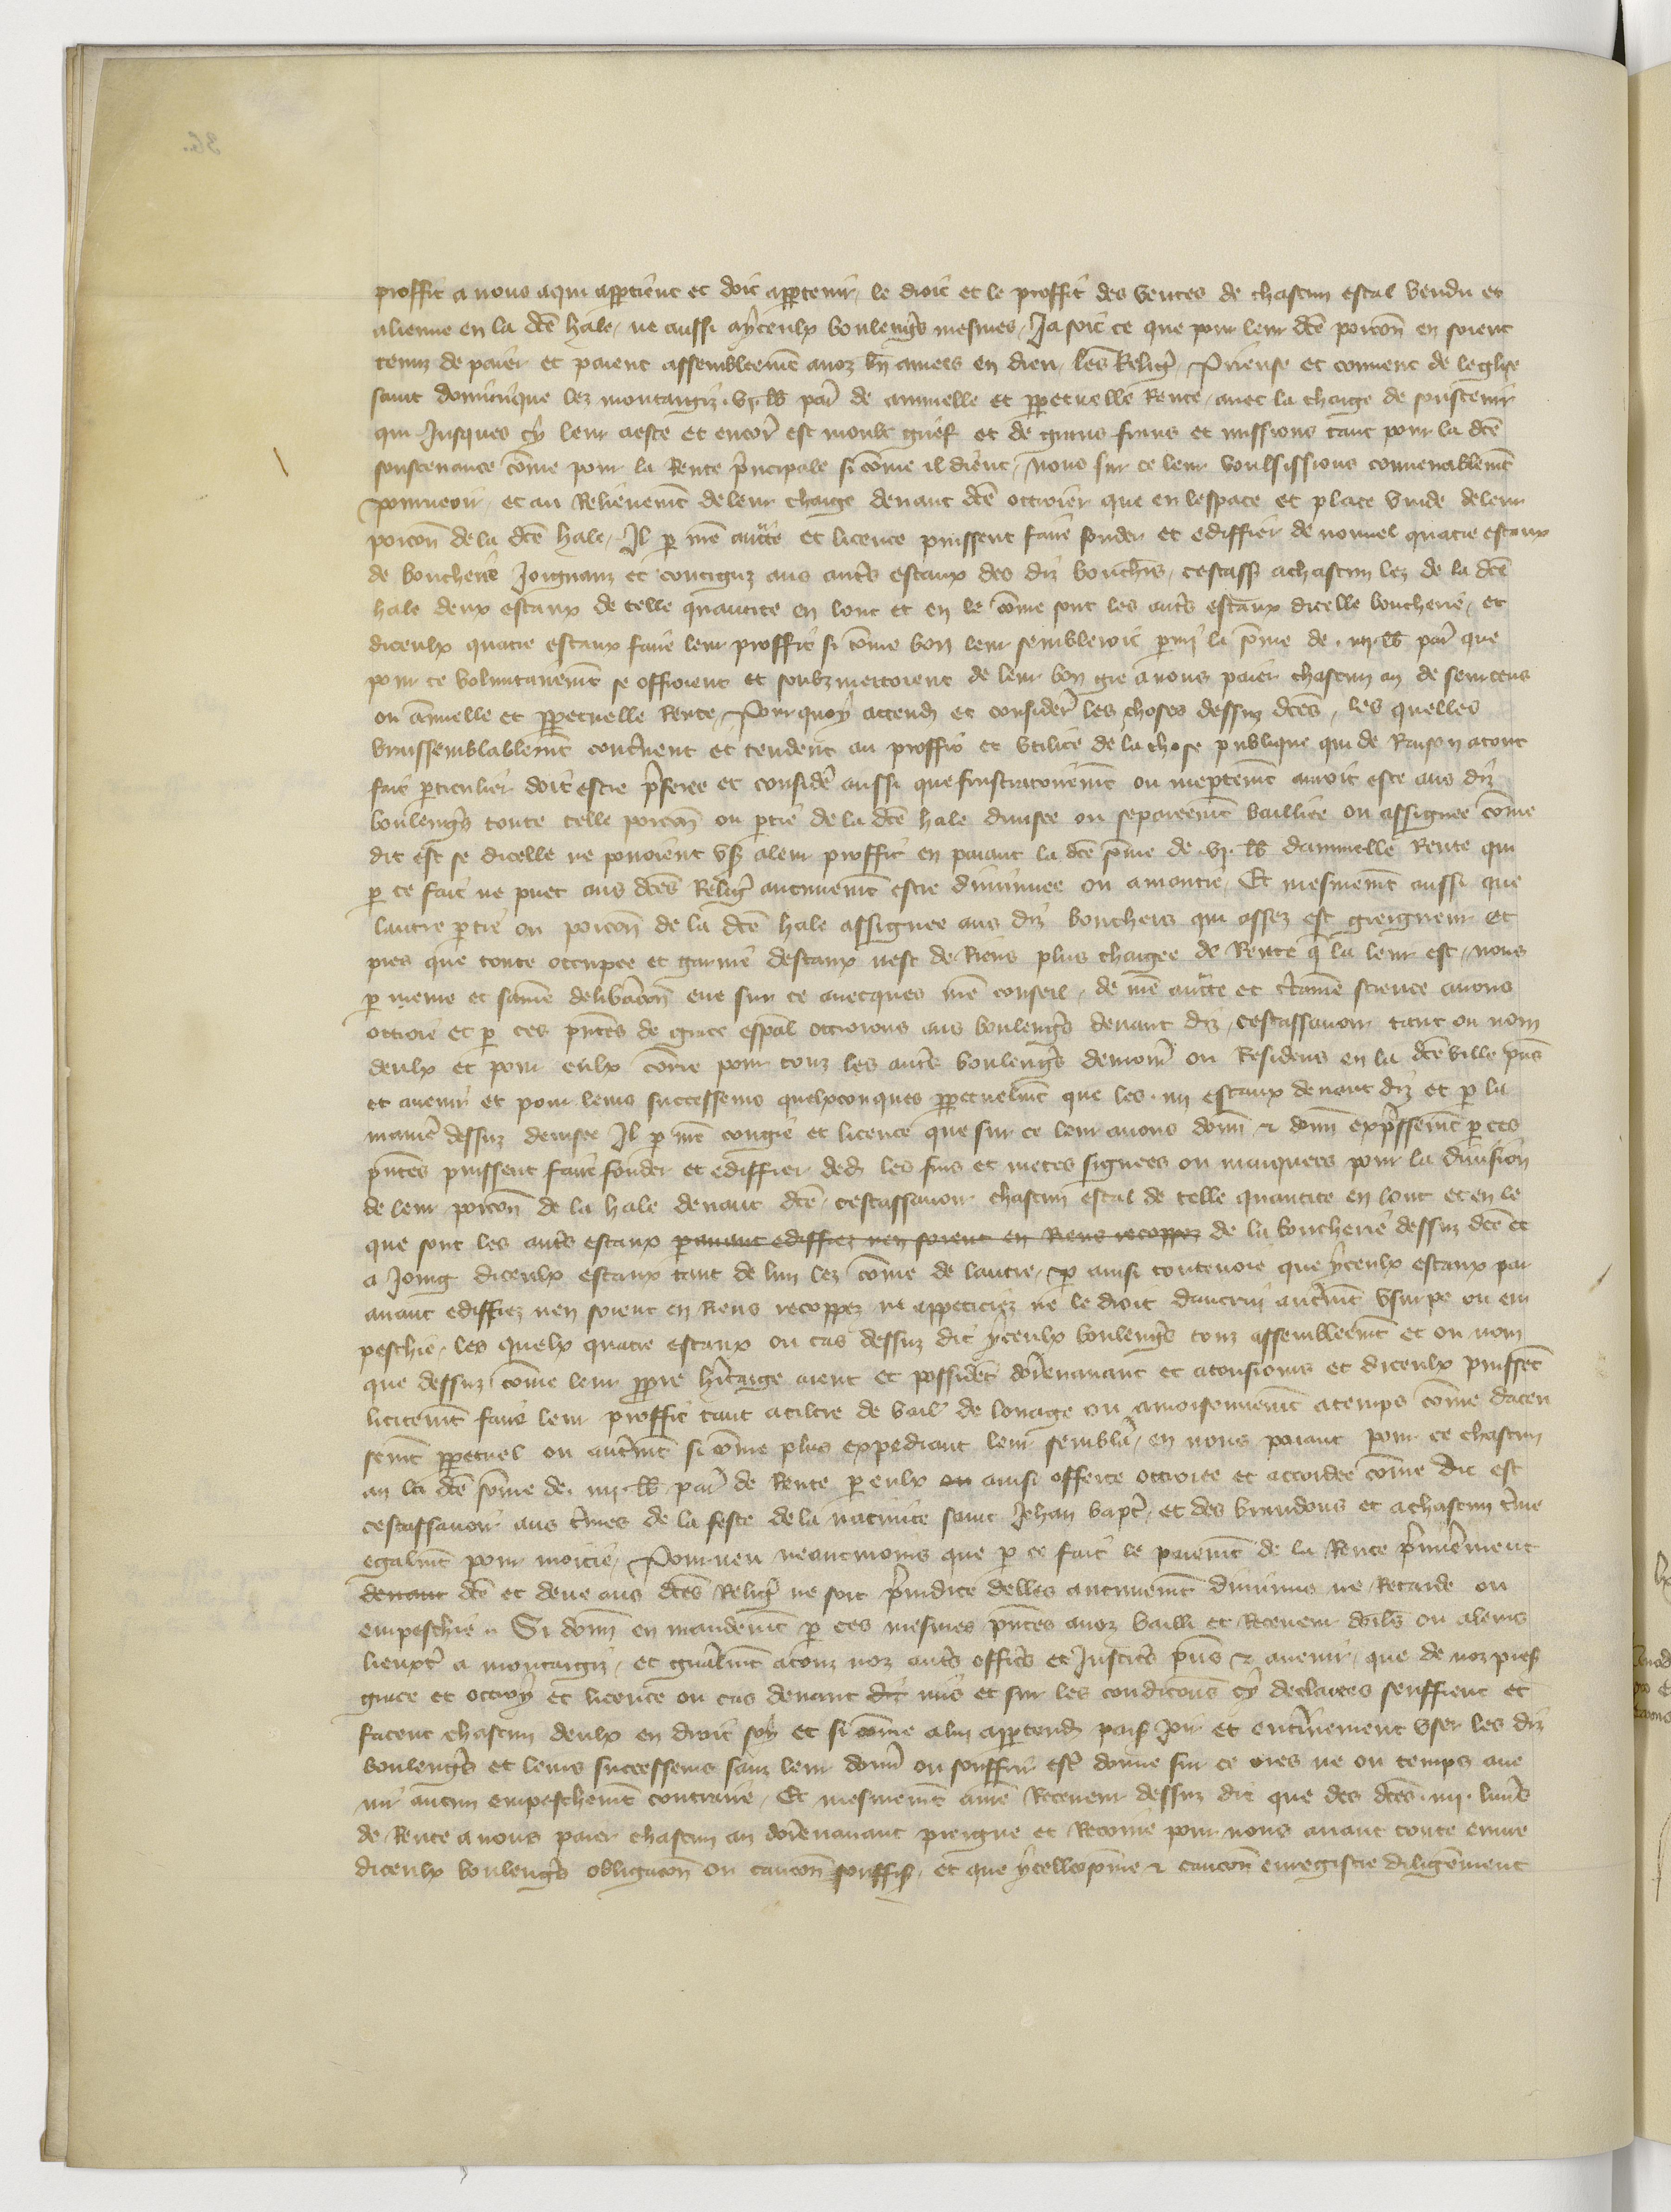 proffit a nous aqui appartient et doit appartenir, le droit et le proffit des ventes de chascun estal vendu et
aliene en la dcē hale, ne aussi aycenlx boulengs mesmes, Ja soit ce que pour leur dcē porcōn en soient
tenuz de paier et paient assembleemt a noz bn amees en dieu, les Religs Prieuse et couvent de leglise
saint dominique lez montargiz .vj. lb par de annuelle et ppetuelle Rente, avec la charge de soustenir
qui Jusques cy leur a este et encor est moult grief et de grans frais et missions tant pour la dcē
soustenance cōme pour la Rente principale si cōme il dient, nous sur ce leur voulsissions convenablemt
pourveoir, et au Relievemt de leur charge devant dcē ottroier que en lespace et place vuide de leur
porcōn de la dcē hale, Il p nrē auctte et licence puissent faire fonder et ediffier de nouvel quatre estaux
de boucherie Joignanz et contiguz aus autrs estaux des diz bouchrs, cestass a chascun lez de la dcē
hale deux estaux de telle quantite en lonc et en le cōme sont les autrs estaux dicelle boucherie, et
diceulx quatre estaux faire leur proffit si cōme bon leur sembleroit parmi la sōme de .iiij. lb par que
pour ce voluntairemt se offroient et soubzmettoient de leur bon gre a nous paier chascun an de seurcens
ou annuelle et ppetuelle Rente, Pour quoy attendu et consider les choses dessuz dcēs, les quelles
vraissemblablemt contienent et tendent au proffit et utilite de la chose publique qui de Raison a tout
fait particulier doit estre preferee et consider aussi que frustratoiremt ou ineptemt auroit este aus diz
boulengs toute telle porcōn ou partie de la dcē hale divisee ou separeemt baillee ou assignee cōme
dit est se dicelle ne povoient user a leur proffit en paiant la dcē sōme de .vj. lb dannuelle Rente qui
p ce fait ne puet aus dcēs Religs aucunemt estre diminuee ou amantie, Et mesmemt aussi que
lautre partie ou porcōn de la dcē hale assignee aus diz bouchers qui assez est greigneur et
pres que toute occupee et garnie destaux nest de Riens plus chargee de Rente q la leur est, nous
p meure et saine deliberacōn eue sur ce avecques nrē conseil, de nrē auctte et ctaine science avons
ottroie et p ces pntes de grace espal ottroions aus boulengs devant diz, cestassavoir tant ou nom
deulx et pour eulx cōme pour touz les autrs boulengs demour ou Residens en la dcē ville pns
et avenir et pour leurs successeurs quelxconques ppetuelmt que les .iiij. estaux devant diz et p la
manie dessuz devisee Il p nrē congie et licence que sur ce leur avons donn & donn expssemt p ces
pntes puissent faire fonder et ediffier dedens les fins et metes signees ou marquees pour la division
de leur porcōn de la hale devant dcē, cestassavoir chascun estal de telle quantite en lonc et en le
que sont les autrs estaux paravant ediffiez nen soient en Riens recoppez de la boucherie dessuz dcē et
a Joing diceulx estaux tant de lun lez cōme de lautre, p ainsi toutevoie que yceulx estaux par
avant ediffiez nen soient en Riens recoppez ne appeticiez ne le droit dautrui autremt usurpe ou em
peschie, les quelx quatre estaux ou cas dessuz dit yceulx boulengs touz assembleemt et ou nom
que dessuz cōme leur ppre heritaige aient et possident doresenavant et a tousjours et diceulx puissent
licitemt faire leur proffit tant a tiltre de bail de louage ou amoisonnemt a temps cōme dacen
semt ppetuel ou autremt si cōme plus expediant leur semblera, en nous paiant pour ce chascun
an la dcē sōme de .iiij. lb par de Rente p eulx ou ainsi offerte ottroiee et accordee cōme dit est
cestassavoir aus times de la feste de la nativite saint Jehan bapte, et des brandons et a chascun time
egalmt pour moitie, Pourveu neantmoins que p ce fait le paiemt de la Rente premierement
devant dcē et deue aus dcēs Religs ne soit prejudice delles aucunemt diminue ne Retarde ou
empeschie. Si donn en mandemt p ces mesmes pntes a noz bailli et Receveur dorls ou a leurs
lieuxtn a montargiz, et gnalmt a touz noz autrs offices et Justices pns & avenir, que de noz pres
grace et ottroy et licence ou cas devant dit mis et sur les condicōns cy declairees seuffrent et
facent chascun deulx en droit soy et si cōme a lui appartendra paisi Joir et entierement user les diz
boulengs et leurs successeurs sanz leur donn ou souffrir estre donne sur ce ores ne ou temps ave
nir aucun empeschemt contraire, Et mesmemt nrē Receveur dessuz dit que des dcēs .iiij. livres
de Rente a nous paier chascun an doresenavant preigne et Recoive pour nous avant toute euvre
diceulx boulengs obligacōn ou caucōn souffis, et que ycelle sōme & caucōn enregistre diligemment